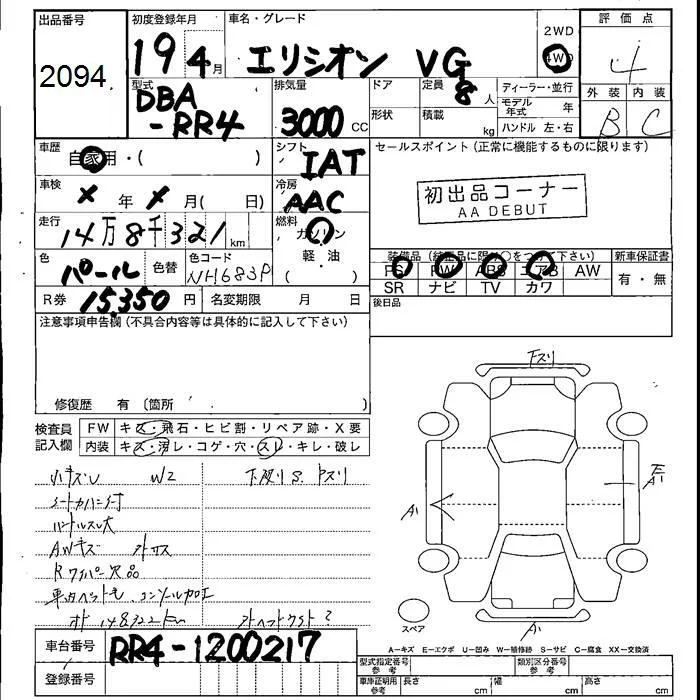 出品番号
2094
初度登録年月
19 4月
車名・グレード
エリシオン VG
2WD
4WD
評価点
4
外装 内装
B C
型式
DBA
-RR4
排気量
3000 CC
ドア
定員
8人
形状
積載 kg
ディーラー・並行
モデル年式 年
ハンドル 左・右
車歴
自家用・( )
シフト
IAT
セールスポイント(正常に機能するものに限ります)
初出品コーナー
AA DEBUT
車検
× 年 × 月( 日)
冷房
AAC
走行
14万8千321km
燃料
ガソリン
軽・油
( )
色
パール
色替
色コード
NH683P
装備品(純正品に限り○をつけて下さい)
PS PW ABS エアB AW
SR ナビ TV カワ
新車保証書
有・無
R券 15,350円
名変期限 月 日
後日品
注意事項申告欄(不具合内容等は具体的に記入して下さい)
修復歴 有 〔箇所 〕
検査員
記入欄
FW キズ・飛石・ヒビ割・リペア跡・X要
内装 キズ・汚レ・コゲ・穴・スレ・キレ・破レ
小キズU W2
下廻りS.下スリ
シートカバー付
ハンドルスレ大
AWキズ
Rワイパー欠品
車内ペット毛 コンソール加工
148322km
下スリ
A1
A1
A1
スペア
車台番号
RR4-1200217
登録番号
A-キズ E-エクボ U-凹み W-補修跡 S-サビ C-腐食 XX-交換済
型式指定番号
参考
類別区分番号
参考
車庫証明用
参考
長さ cm
幅 cm
高さ cm